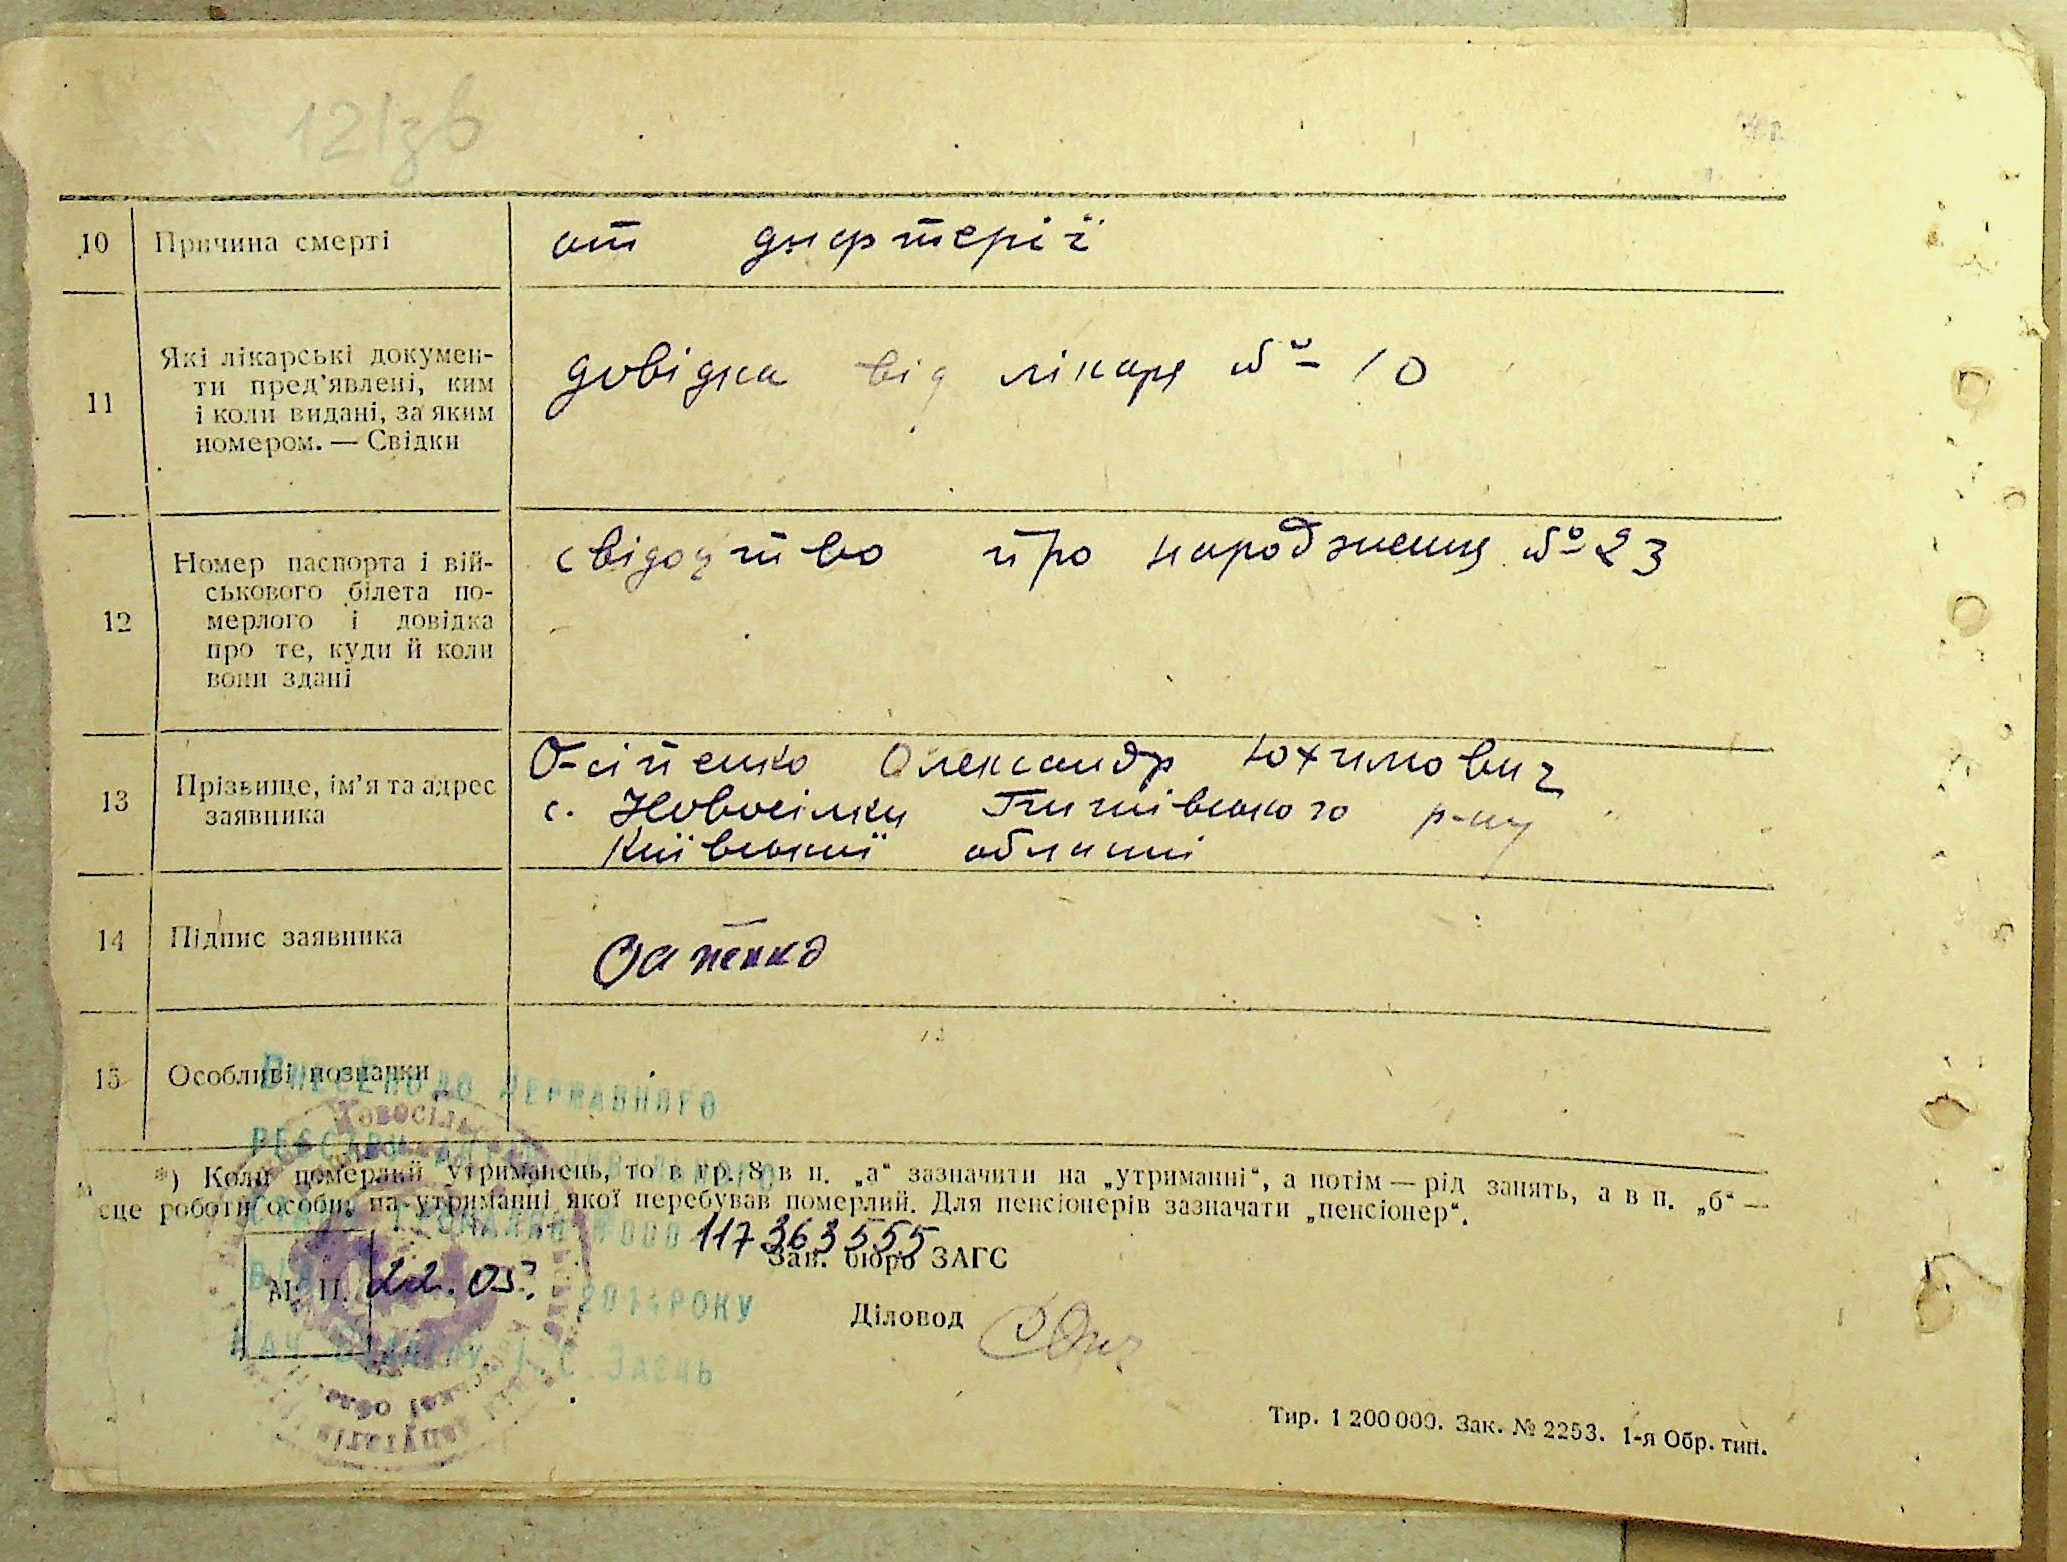 121зв
10 Причина смерті от дифтерії
11 Які лікарські докумен-
ти пред’явлені, ким
і коли видані, за яким
номером. — Свідки
довідка від лікаря № 10
12 Номер паспорта і вій-
ськового білета по-
мерлого і довідка
про те, куди й коли
вони здані
свідоцтво про народження № 23
13 Прізвище, ім’я та адрес
заявника
Осіпенко Олександр Юхимович
с. Новосілки р-ну
Київської області
14 Підпис заявника
15 Особливі познаки
Внесено до Державного
*) Коли померлий утриманець, то в гр. 8 в п. „а“ зазначити на „утриманні“, а потім — рід занять, а в п. „б“ —
сце роботи особи, на утриманні якої перебував померлий. Для пенсіонерів зазначати „пенсіонер“.
117363555
Зав. бюро ЗАГС
М. П. 22.05.
2014 РОКУ
Діловод
Заєць
Тир. 1 200 000. Зак. № 2253. 1-я Обр. тип.